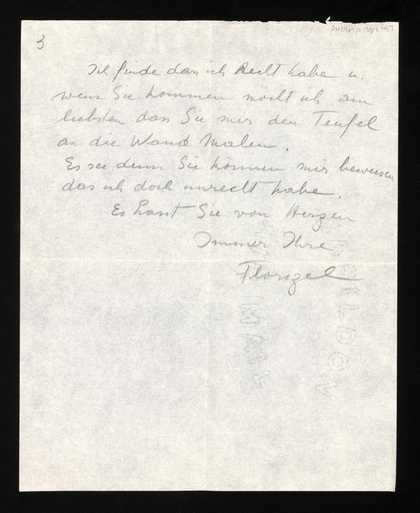 3
Ich finde dass ich Recht habe u.
wenn Sie kommen möcht ich am
liebsten dass Sie mir den Teufel
an die Wand malen.
Es sei denn Sie können mir beweisen
dass ich doch unrecht habe.
Es hasst Sie von Herzen
Immer Ihre
Florizel